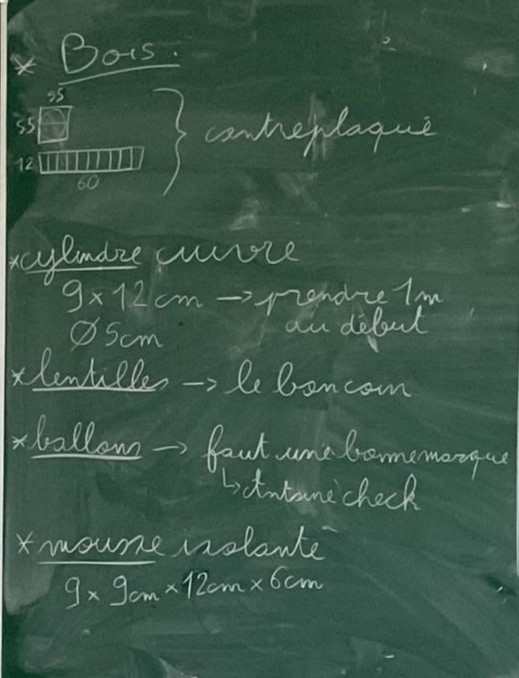 * Bois.
55
55
12
60
contreplaqué
* cylindre cuivre
9 x 12 cm → prendre 1m
au début
Ø 5cm
* lentilles → le bon coin
* ballons → faut une bonne marque
↳ Antoine check
* mousse isolante
9 x 9cm x 12cm x 6cm